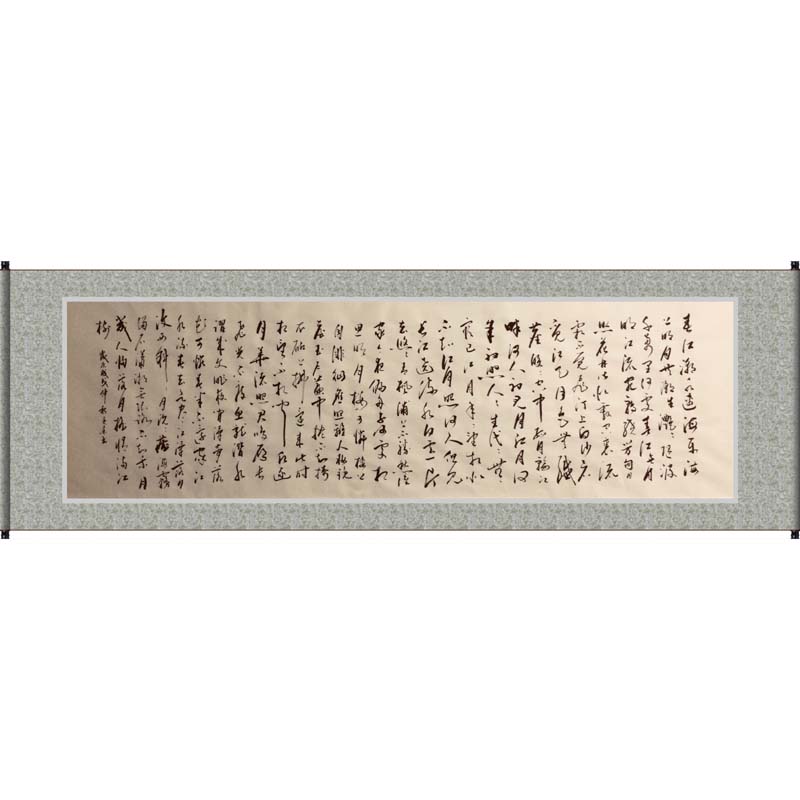 春江潮水連海平海
上明月共潮生灩灩隨波
千萬里何處春江無月
明江流宛轉繞芳甸月
照花林皆似霰空裏流
霜不覺飛汀上白沙看
不見江天一色無纖
塵皎皎空中孤月輪江
畔何人初見月江月何
年初照人人生代代無
窮已江月年年望相似
不知江月照何人但見
長江送流水白雲一片
去悠悠青楓浦上不勝愁誰
家今夜扁舟子何處相
思明月樓可憐樓上
月徘徊應照離人妝鏡
臺玉戶簾中捲不去搗
衣砧上拂還來此時
相望不相聞願逐
月華流照君鴻雁長
飛光不度魚龍潛躍水
成文昨夜閒潭夢落
花可憐春半不還家江
水流春去欲盡江潭落月
復西斜斜月沉沉藏海霧
碣石瀟湘無限路不知乘月
幾人歸落月搖情滿江
樹